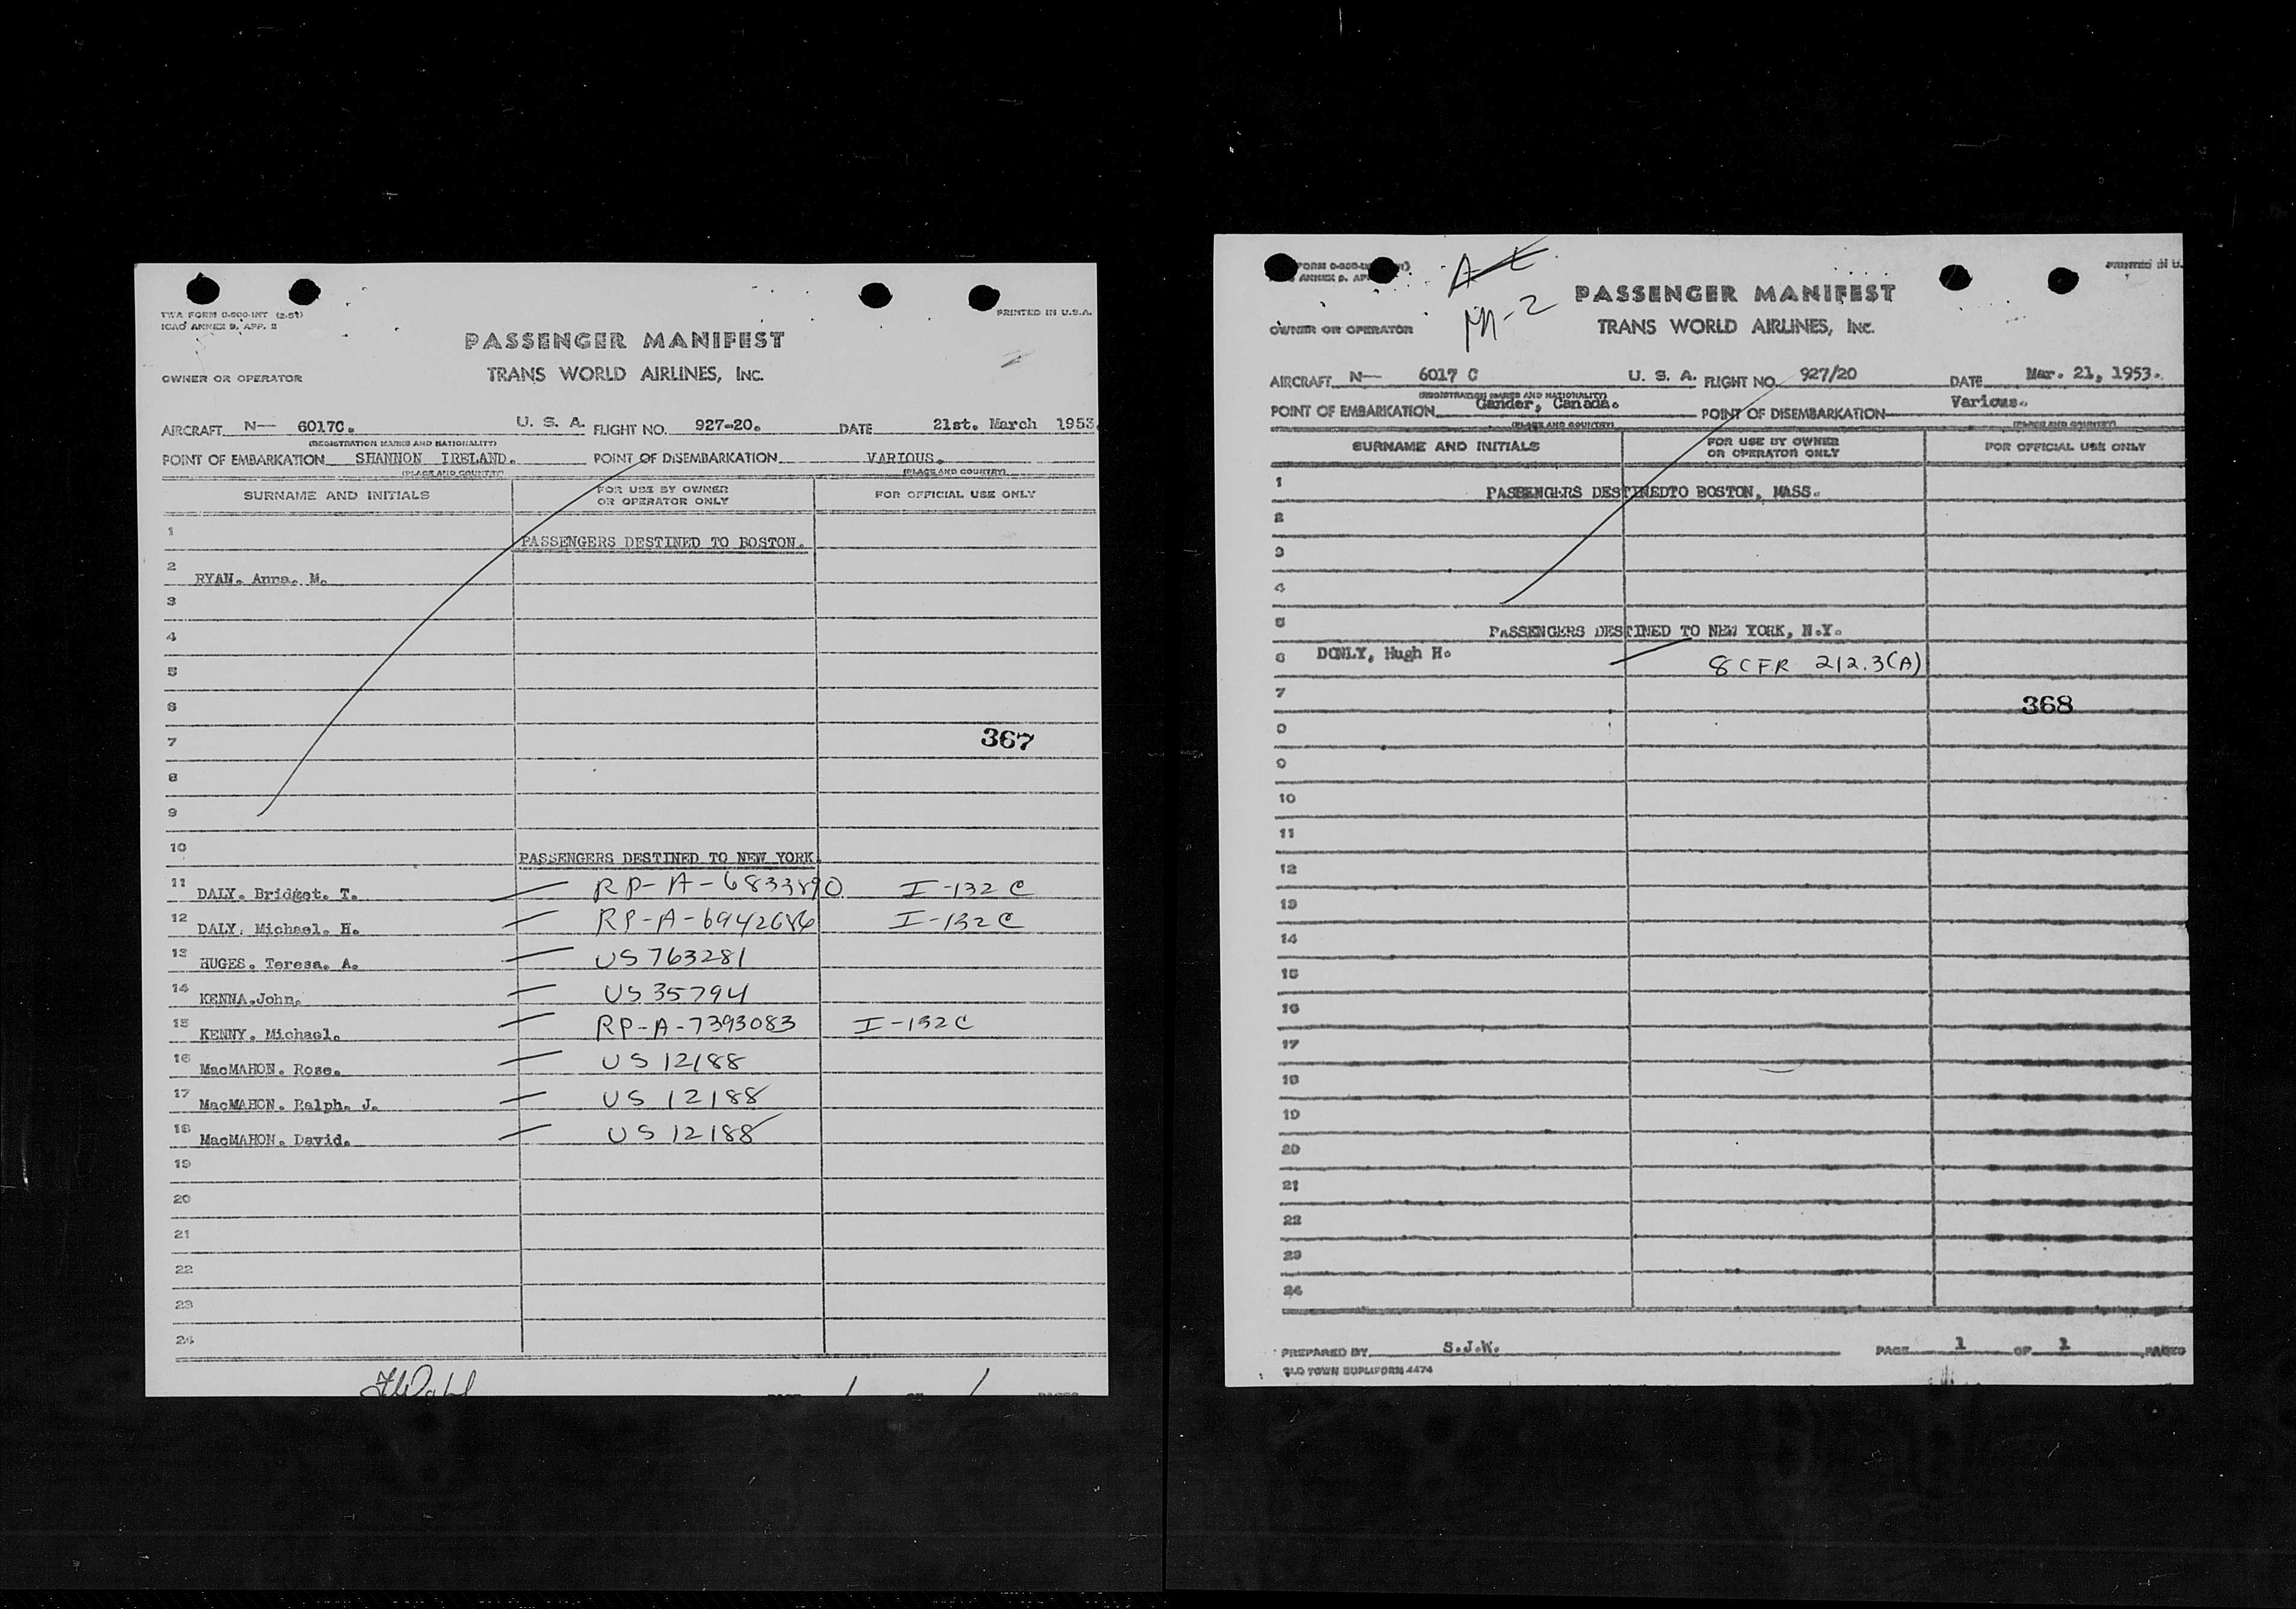 TWA FORM 0-800-INT (2-51)
ICAO ANNEX 9, APP. 2
PRINTED IN U.S.A.
PASSENGER MANIFEST
OWNER OR OPERATOR
TRANS WORLD AIRLINES, INC.
AIRCRAFT N— 6017C. U. S. A. FLIGHT NO. 927-20. DATE 21st. March 1953.
(REGISTRATION MARKS AND NATIONALITY)
POINT OF EMBARKATION SHANNON IRELAND. POINT OF DISEMBARKATION VARIOUS.
(PLACE AND COUNTRY) (PLACE AND COUNTRY)
SURNAME AND INITIALS FOR USE BY OWNER OR OPERATOR ONLY FOR OFFICIAL USE ONLY
1 PASSENGERS DESTINED TO BOSTON.
2 RYAN. Anna. M.
3
4
5
6
7 367
8
9
10 PASSENGERS DESTINED TO NEW YORK.
11 DALY. Bridget. T. — RP-A-6833890 I-132 C
12 DALY. Michael. H. — RP-A-6942686 I-132C
13 HUGES. Teresa. A. — US 763281
14 KENNA.John. — US 35794
15 KENNY. Michael. — RP-A-7393083 I-132C
16 MacMAHON. Rose. — US 12188
17 MacMAHON. Ralph. J. — US 12188
18 MacMAHON. David. — US 12188
19
20
21
22
23
24
PAGE 1 OF 1 PAGES
FORM 0-800-INT
ANNEX 9. APP.
A-L
M-2
PRINTED IN U.
PASSENGER MANIFEST
OWNER OR OPERATOR
TRANS WORLD AIRLINES, INC.
AIRCRAFT N— 6017 C U. S. A. FLIGHT NO. 927/20 DATE Mar. 21, 1953.
(REGISTRATION MARKS AND NATIONALITY)
POINT OF EMBARKATION Gander, Canada. POINT OF DISEMBARKATION Various.
(PLACE AND COUNTRY) (PLACE AND COUNTRY)
SURNAME AND INITIALS FOR USE BY OWNER OR OPERATOR ONLY FOR OFFICIAL USE ONLY
1 PASSENGERS DESTINEDTO BOSTON, MASS.
2
3
4
5 PASSENGERS DESTINED TO NEW YORK, N.Y.
6 DONLY, Hugh H. — 8 CFR 212.3(A)
7 368
8
9
10
11
12
13
14
15
16
17
18
19
20
21
22
23
24
PREPARED BY S.J.W. PAGE 1 OF 1 PAGES
OLD TOWN DUPLIFORM 4474